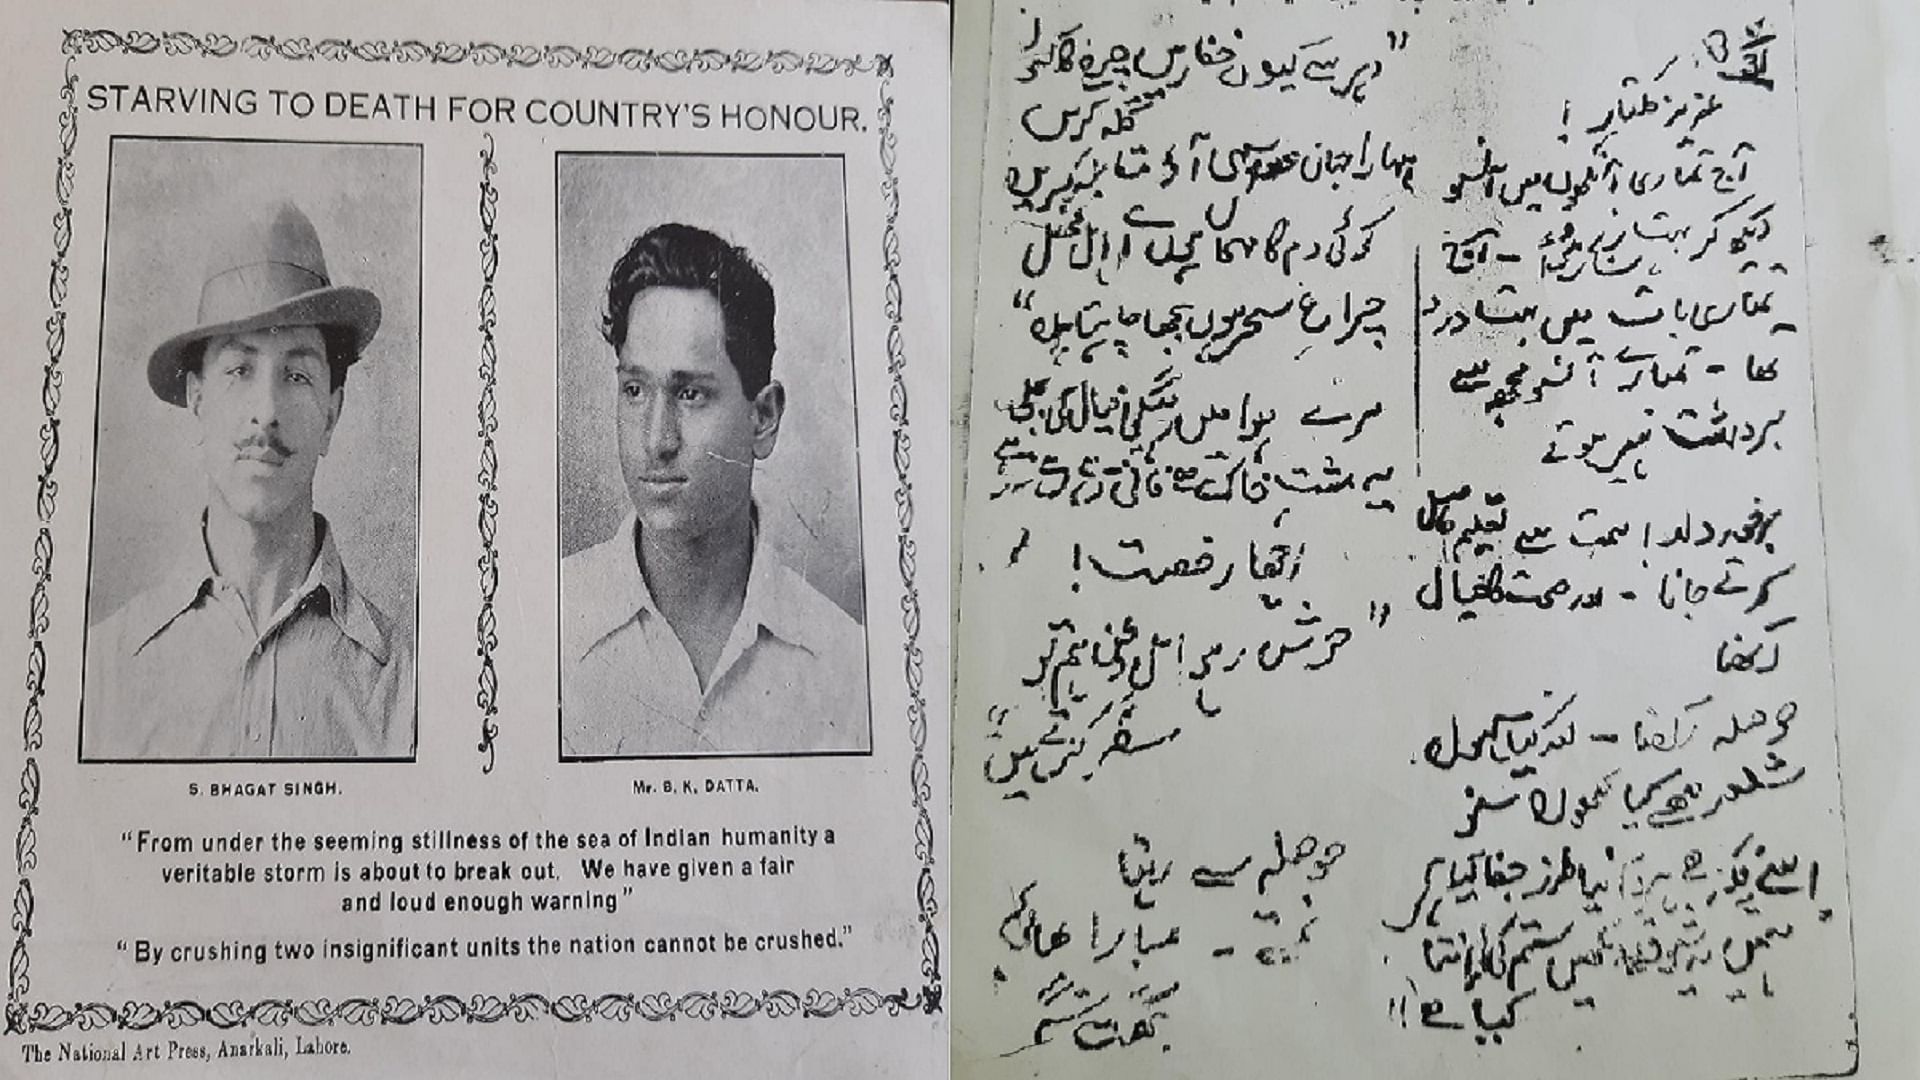 STARVING TO DEATH FOR COUNTRY'S HONOUR.
S. BHAGAT SINGH.
Mr. B. K. DATTA.
“From under the seeming stillness of the sea of Indian humanity a
veritable storm is about to break out. We have given a fair
and loud enough warning”
“By crushing two insignificant units the nation cannot be crushed.”
The National Art Press, Anarkali, Lahore.
عزیز کلتار !
آج تمہاری آنکھوں میں آنسو
دیکھ کر بہت رنج ہوا - آج
تمہاری بات میں بہت درد
تھا - تمہارے آنسو مجھ سے
برداشت نہیں ہوتے
برخوردار ! ہمت سے تعلیم حاصل
کرتے جانا - اور صحت کا خیال
رکھنا
حوصلہ رکھنا - اور کیا
کیا کہوں سنو
اسے فکر ہے ہر دم نیا طرز جفا کیا ہے
ہمیں یہ شوق ہے دیکھیں ستم کی انتہا
کیا ہے !!
"دہر سے کیوں خفا رہیں چرخ کا کیوں
گلہ کریں
سارا جہاں عدو سہی آؤ مقابلہ کریں
کوئی دم کا مہماں ہوں اے اہل محفل
چراغ سحر ہوں بجھا چاہتا ہوں"
مرے ہوا میں رہیگی خیال کی بجلی
یہ مشت خاک ہے فانی رہے نہ رہے
اچھا رخصت !
"خوش رہو اہل وطن ہم تو
سفر کرتے ہیں"
حوصلہ سے رہنا
نمستے - تمہارا بھائی
بھگت سنگھ